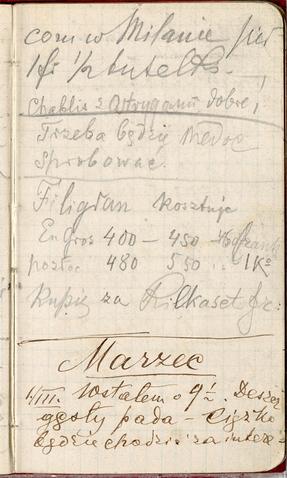 com w Milanie
1 fr ½ butelki.
Chablis z Ostrygami dobre!
Trzeba będzie Medoc
Sprobować.
Filigran kosztuje
En Gros 400 — 450
pozłoc 480 550 .. 1 Ko
Kupię za Kilkaset fr:
Marzec
1/III. Wstałem o 9½. Deszcz
gęsty pada — Ciężko
będzie chodzić za